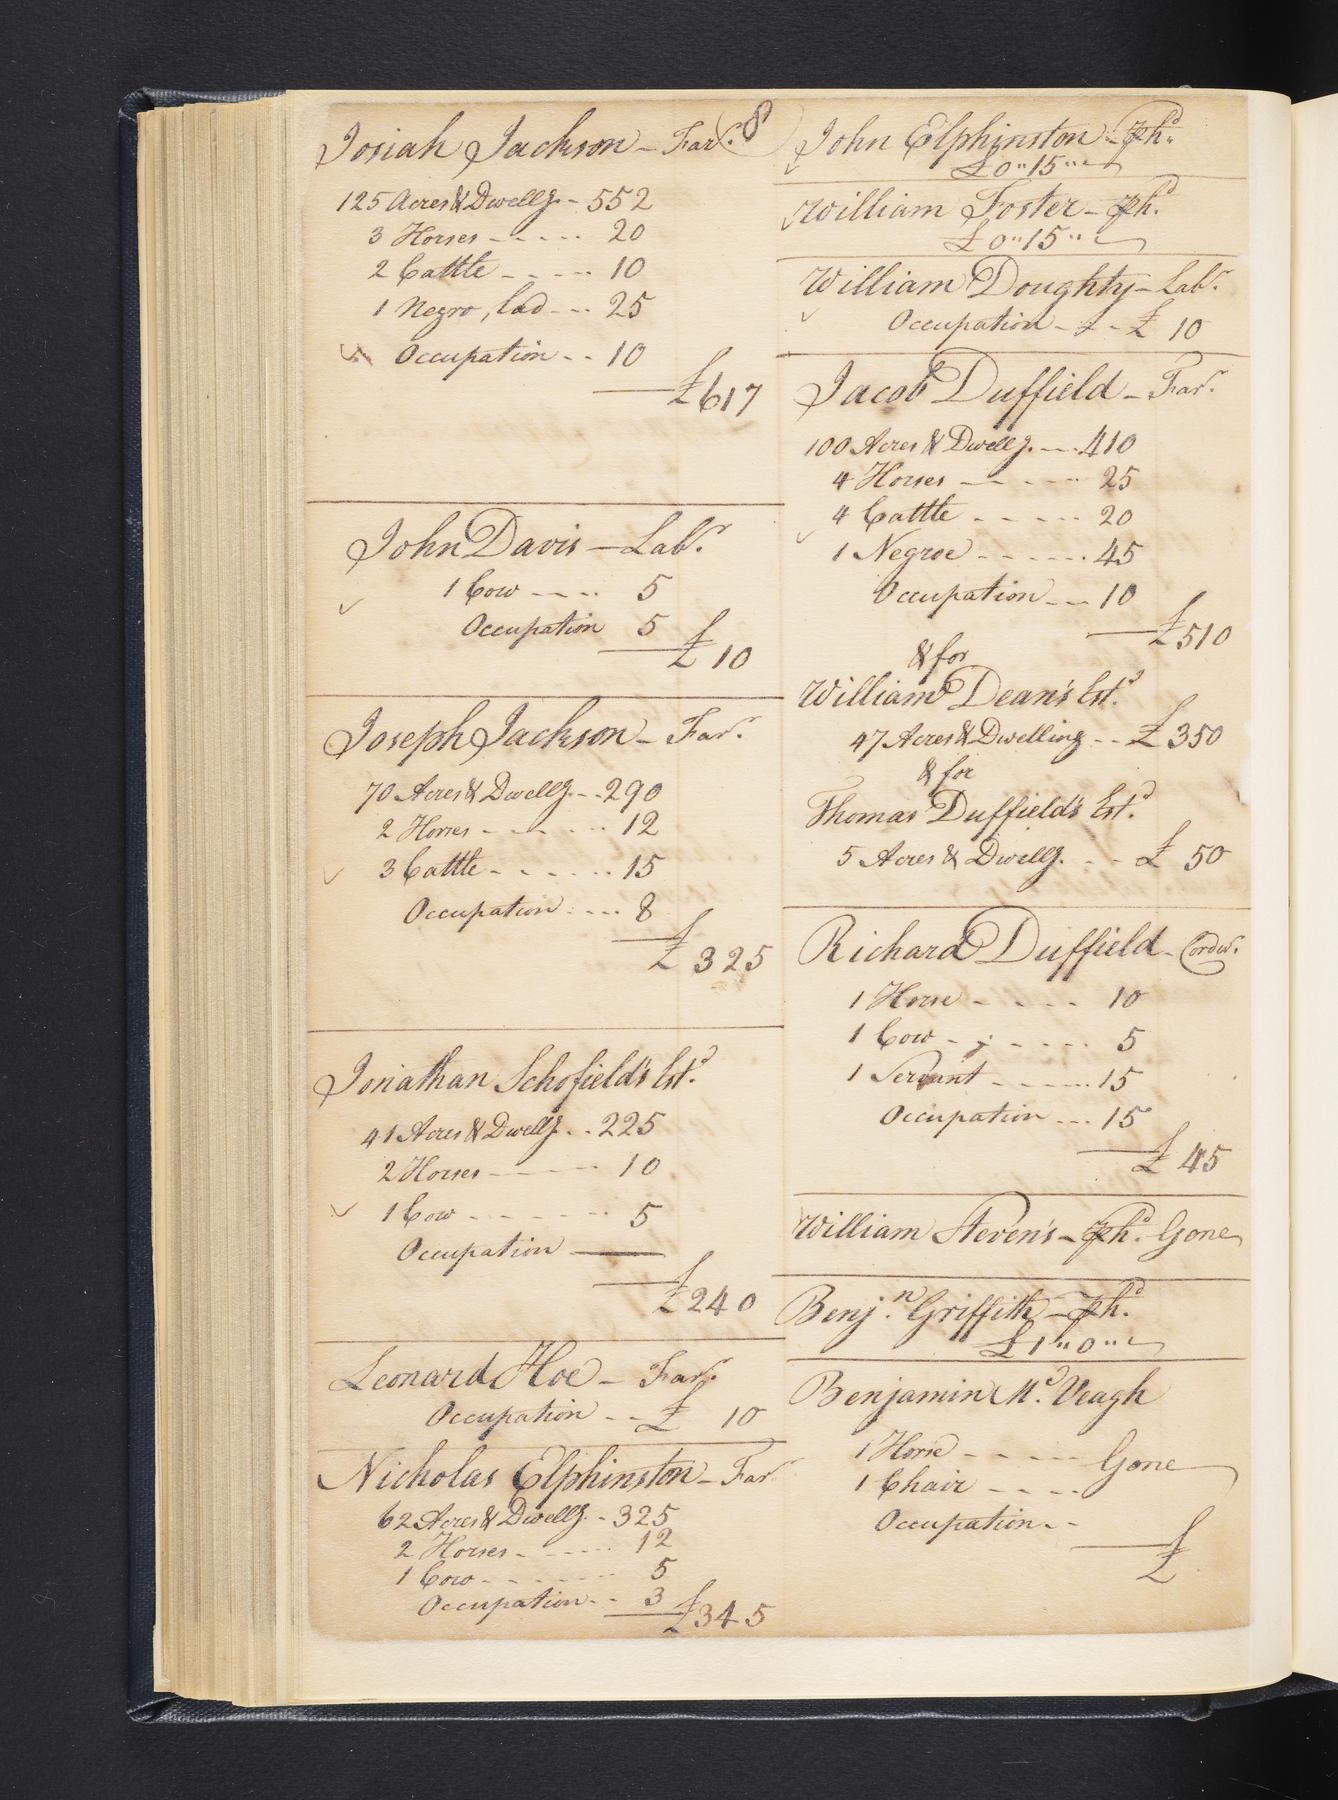 8
Josiah Jackson - Farr.
125 Acres & Dwellg. - 552
3 Horses - - - - - 20
2 Cattle - - - - - 10
1 Negro, lad - - - 25
Occupation - - 10
£617
John Davis - Labr.
1 Cow - - - - 5
Occupation 5
£ 10
Joseph Jackson - Farr.
70 Acres & Dwellg. - - 290
2 Horses - - - - - 12
3 Cattle - - - - - - 15
Occupation - - - - 8
£ 325
Jonathan Schofield's Estd.
41 Acres & Dwellg. - - 225
2 Horses - - - - - 10
1 Cow - - - - - - 5
Occupation ——
£240
Leonard Hoe - Farr.
Occupation - - £ 10
Nicholas Elphinston - Farr
62 Acres & Dwellg. - 325
2 Horses - - - - - 12
1 Cow - - - - - - 5
Occupation - - 3
£345
John Elphinston - Shd.
£0"15"-
William Foster - Shd.
£0"15"-
William Doughty - Labr.
Occupation - - - £ 10
Jacob Duffield - Farr.
100 Acres & Dwellg. - - 410
4 Horses - - - - - 25
4 Cattle - - - - - 20
1 Negroe - - - - - - 45
Occupation - - - 10
£510
& for
William Dean's Estd.
47 Acres & Dwelling - - £350
& for
Thomas Duffield's Estd.
5 Acres & Dwellg. - - £ 50
Richard Duffield - Cordwr.
1 Horse - - - - 10
1 Cow - - - - - - 5
1 Servant - - - - - 15
Occupation - - - 15
£ 45
William Steven's - Shd. Gone
Benjn. Griffith - Shd.
£1"0"-
Benjamin Mcd. Veagh
1 Horse - - - - - Gone
1 Chair - - - -
Occupation - -
£